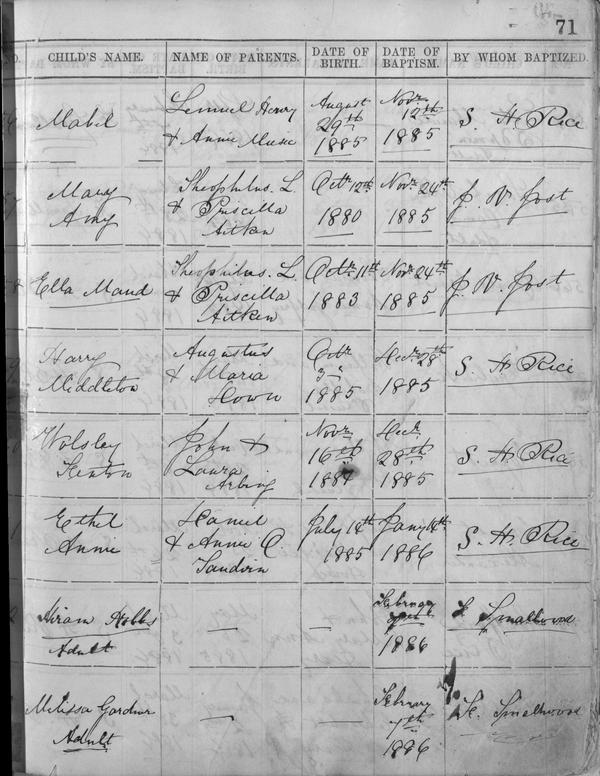 71
CHILD'S NAME. NAME OF PARENTS. DATE OF BIRTH. DATE OF BAPTISM. BY WHOM BAPTIZED.
Mabel
Lemuel Henry
& Annie
August
29th
1885
Novr
12th
1885
S. H. Rice
Mary
Amy
Theophilus. L.
& Priscilla
Aitken
Octr 12th
1880
Novr 24th
1885
J. V. Jost
Ella Maud
Theophilus. L.
& Priscilla
Aitken
Octr 11th
1883
Novr 24th
1885
J. V. Jost
Harry
Middleton
Augustus
& Maria
Octr
3
1885
Decr 28th
1885
S. H. Rice
Wolsley
John &
Laura
Novr
16th
Decr
28th
1885
S. H. Rice
Ethel
Annie
& Annie C.
July 14th
1885
Jany 14th
1886
S. H. Rice
Hiram Hobbs
Adult
—
—
February
1886
F. Smallwood
Melissa Gardner
Adult
—
—
February
7th
1886
F. Smallwood